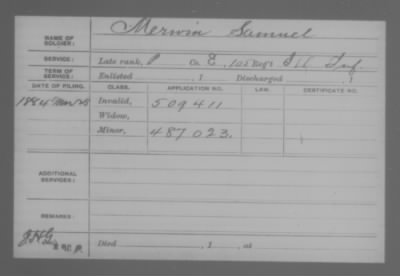 NAME OF SOLDIER: Merwin Samuel
SERVICE: Late rank, P Co. E, 105 Reg't Ill Inf.
TERM OF SERVICE: Enlisted , 1 Discharged , 1
DATE OF FILING. CLASS. APPLICATION NO. LAW. CERTIFICATE NO.
1884 Mar 28 Invalid, 509411
Widow,
Minor, 487023.
ADDITIONAL SERVICES:
REMARKS:
Died , 1 , at